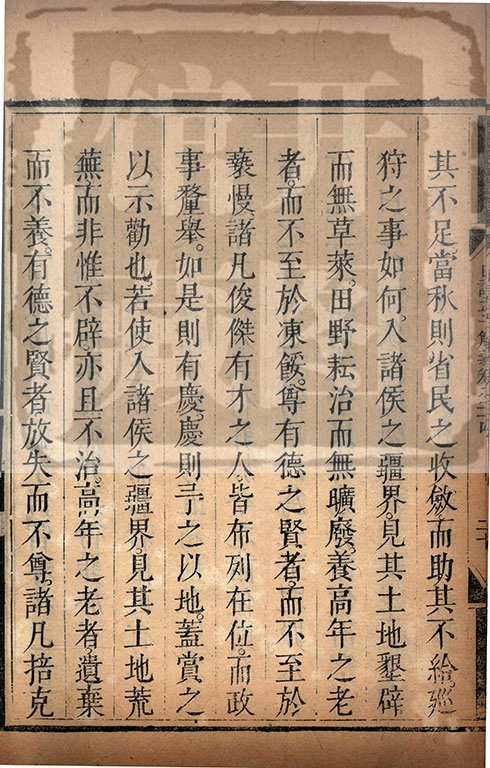 其不足當秋則省民之收斂而助其不給巡
狩之事如何入諸侯之疆界見其土地墾辟
而無草萊田野耘治而無曠廢養高年之老
者而不至於凍餒尊有德之賢者而不至於
褻慢諸凡俊傑有才之人皆布列在位而政
事釐舉如是則有慶慶則予之以地蓋賞之
以示勸也若使入諸侯之疆界見其土地荒
蕪而非惟不辟亦且不治高年之老者遺棄
而不養有德之賢者放失而不尊諸凡掊克